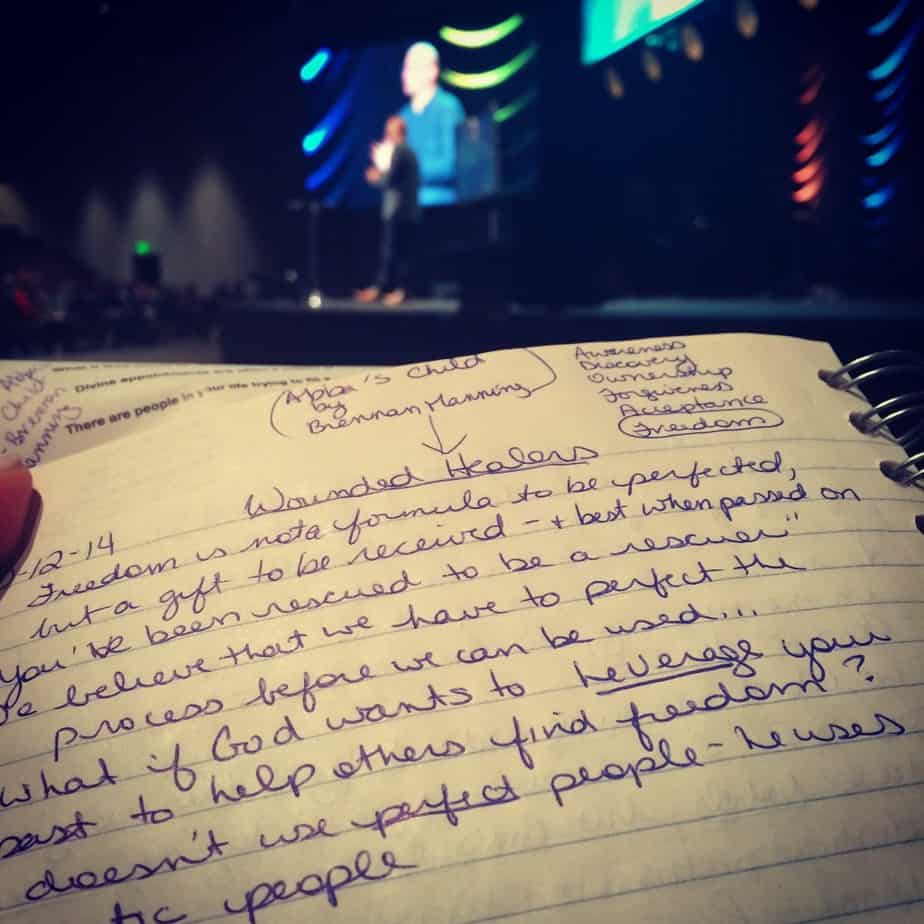 Divine
There are people in your life trying to
Abba's Child
by
Brennan Manning
Child
Brennan
Awareness
Discovery
Ownership
Forgiveness
Acceptance
Freedom
Wounded Healers
-12-14
Freedom is not a formula to be perfected,
but a gift to be received - + best when passed on
You've been rescued to be a rescuer"
believe that we have to perfect the
process before we can be used...
What if God wants to leverage your
past to help others find freedom?
doesn't use perfect people - he uses
tic people